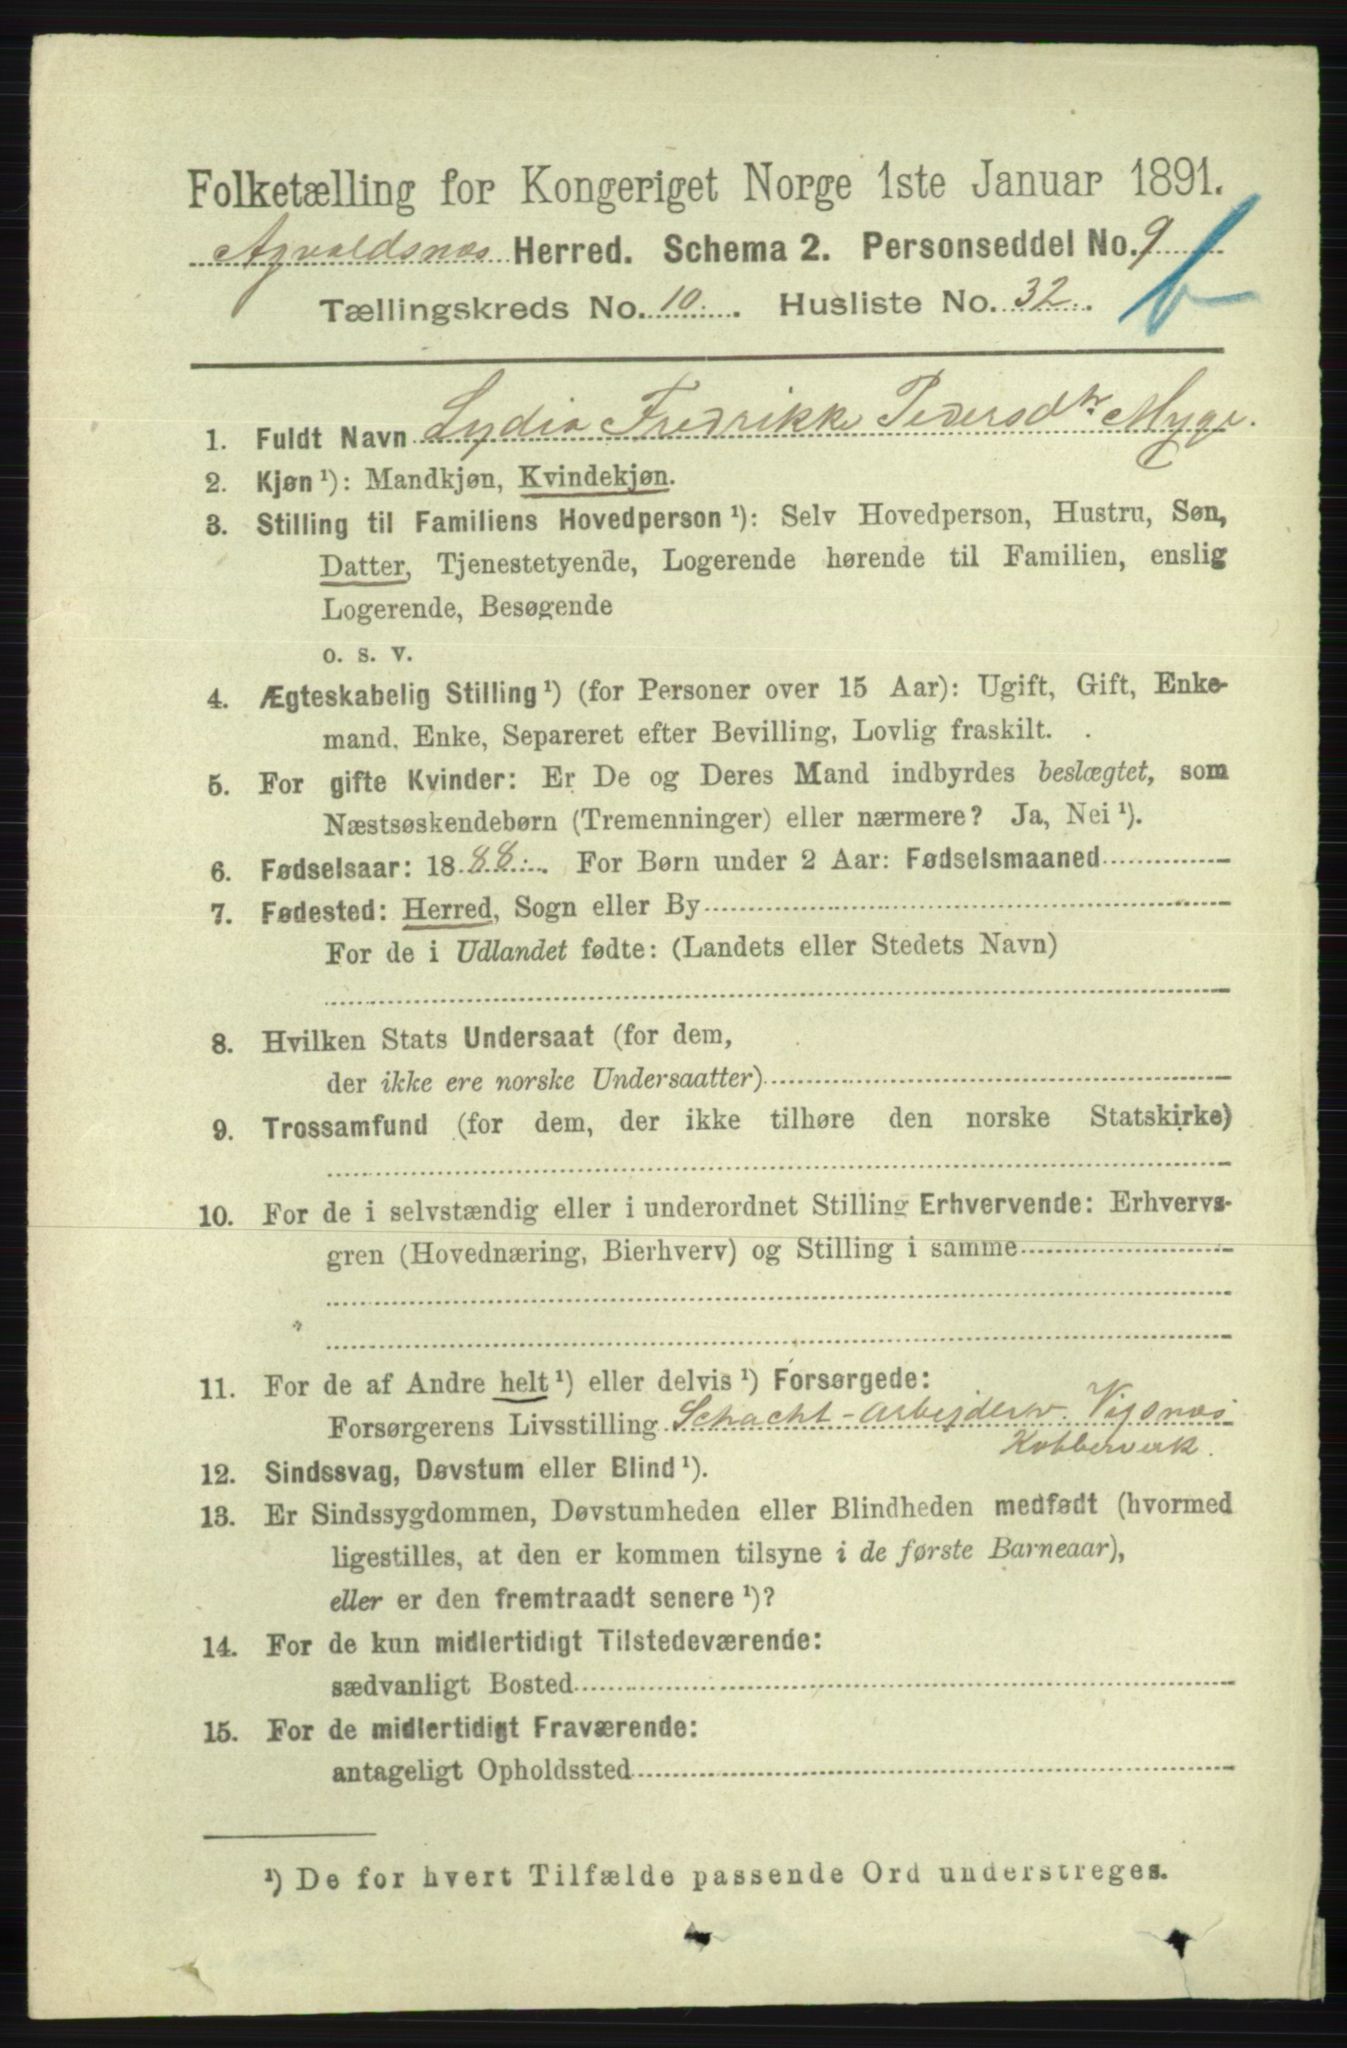 Folketælling for Kongeriget Norge 1ste Januar 1891.
Agvaldsnæs Herred. Schema 2. Personseddel No. 9
b
Tællingskreds No. 10. Husliste No. 32.
1. Fuldt Navn Lydia Fredrikke Pedersdtr. Myge.
2. Kjøn ¹): Mandkjøn, Kvindekjøn.
3. Stilling til Familiens Hovedperson ¹): Selv Hovedperson, Hustru, Søn,
Datter, Tjenestetyende, Logerende hørende til Familien, enslig
Logerende, Besøgende
o. s. v.
4. Ægteskabelig Stilling ¹) (for Personer over 15 Aar): Ugift, Gift, Enke-
mand, Enke, Separeret efter Bevilling, Lovlig fraskilt.
5. For gifte Kvinder: Er De og Deres Mand indbyrdes beslægtet, som
Næstsøskendebørn (Tremenninger) eller nærmere? Ja, Nei ¹).
6. Fødselsaar: 1888. For Børn under 2 Aar: Fødselsmaaned
7. Fødested: Herred, Sogn eller By
For de i Udlandet fødte: (Landets eller Stedets Navn)
8. Hvilken Stats Undersaat (for dem,
der ikke ere norske Undersaatter)
9. Trossamfund (for dem, der ikke tilhøre den norske Statskirke)
10. For de i selvstændig eller i underordnet Stilling Erhvervende: Erhvervs-
gren (Hovednæring, Bierhverv) og Stilling i samme
11. For de af Andre helt ¹) eller delvis ¹) Forsørgede:
Forsørgerens Livsstilling Schacht-arbejder v. Vigsnæs
Kobberverk.
12. Sindssvag, Døvstum eller Blind ¹).
13. Er Sindssygdommen, Døvstumheden eller Blindheden medfødt (hvormed
ligestilles, at den er kommen tilsyne i de første Barneaar),
eller er den fremtraadt senere ¹)?
14. For de kun midlertidigt Tilstedeværende:
sædvanligt Bosted
15. For de midlertidigt Fraværende:
antageligt Opholdssted
¹) De for hvert Tilfælde passende Ord understreges.